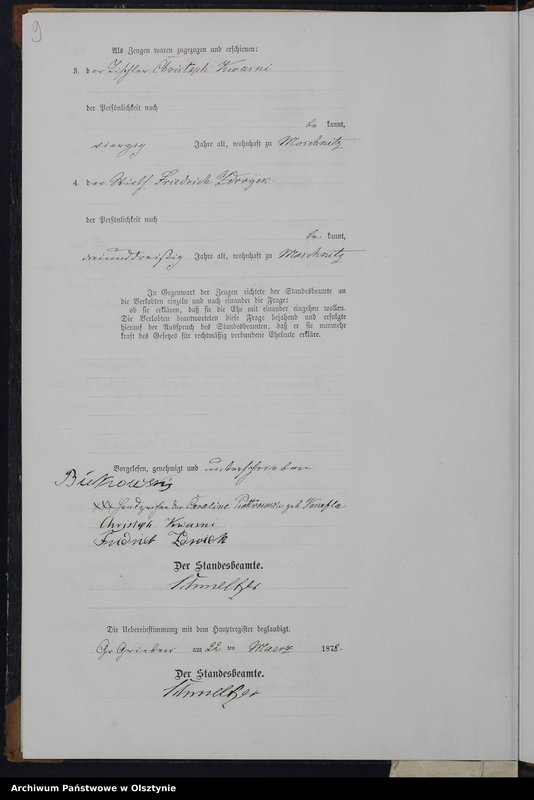 9
Als Zeugen waren zugezogen und erschienen:
3. der Tischler Christoph Kwasni
der Persönlichkeit nach
be kannt,
vierzig Jahre alt, wohnhaft zu Moschnitz
4. der Wirth Friedrich Zdroyek
der Persönlichkeit nach
be kannt,
dreiunddreißig Jahre alt, wohnhaft zu Moschnitz
In Gegenwart der Zeugen richtete der Standesbeamte an
die Verlobten einzeln und nach einander die Frage:
ob sie erklären, daß sie die Ehe mit einander eingehen wollen.
Die Verlobten beantworteten diese Frage bejahend und erfolgte
hierauf der Ausspruch des Standesbeamten, daß er sie nunmehr
kraft des Gesetzes für rechtmäßig verbundene Eheleute erkläre.
Vorgelesen, genehmigt und unterschrieben
XXX Handzeichen der Caroline geb.
Christoph Kwasni
Der Standesbeamte.
Schmeltzer
Die Uebereinstimmung mit dem Hauptregister beglaubigt.
Gr Grieben am 22 ten Maerz 1878.
Der Standesbeamte.
Schmeltzer
Archiwum Państwowe w Olsztynie